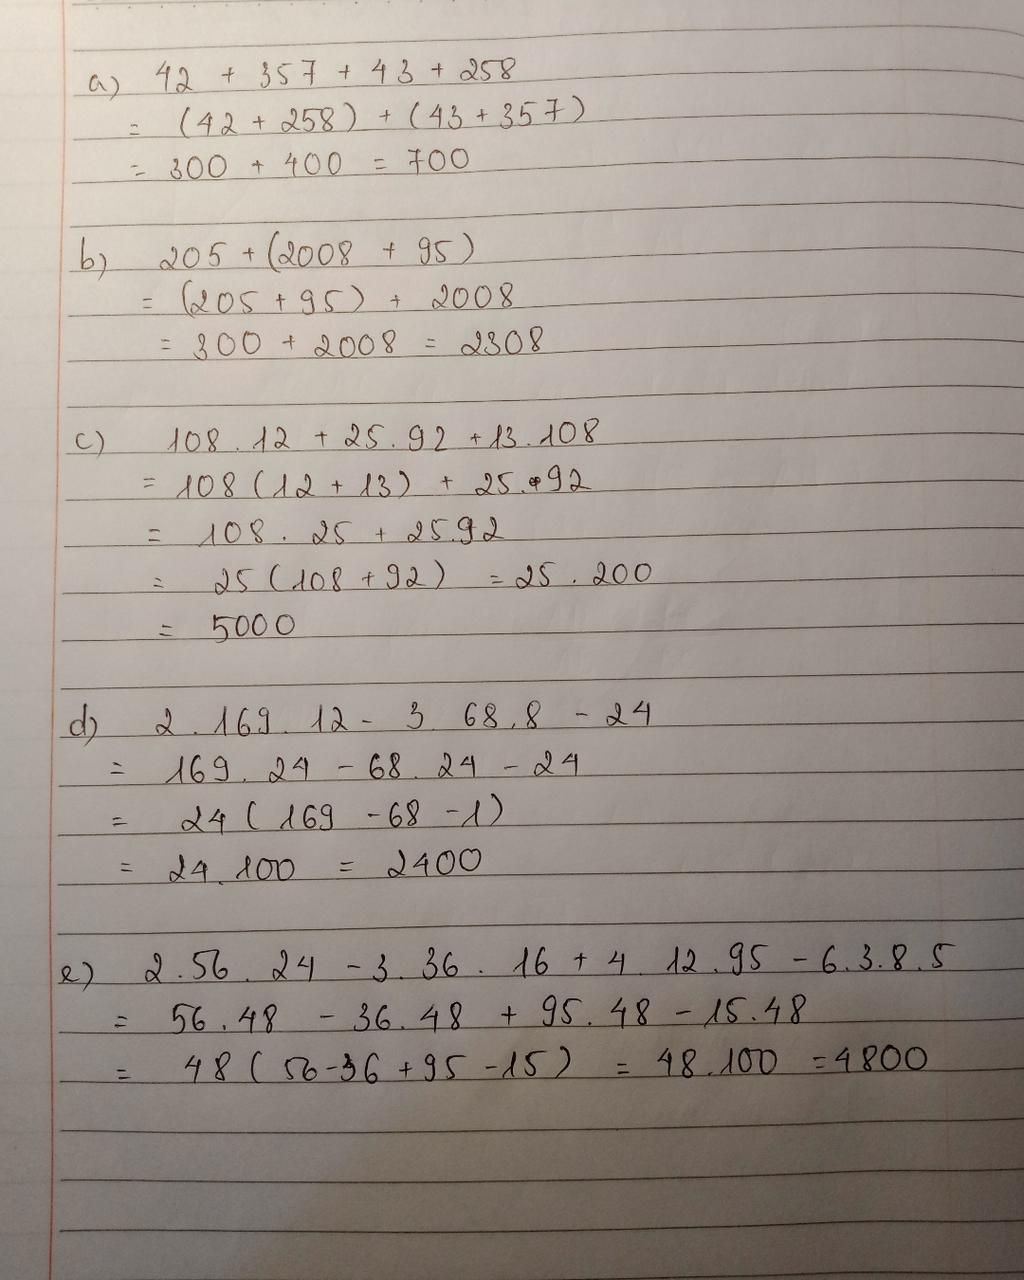 a) 42 + 357 + 43 + 258
= (42 + 258) + (43 + 357)
= 300 + 400 = 700
b) 205 + (2008 + 95)
= (205 + 95) + 2008
= 300 + 2008 = 2308
c) 108 . 12 + 25 . 92 + 13 . 108
= 108 (12 + 13) + 25 . 92
= 108 . 25 + 25.92
= 25 (108 + 92) = 25 . 200
= 5000
d) 2 . 169 . 12 - 3 . 68 . 8 - 24
= 169 . 24 - 68 . 24 - 24
= 24 ( 169 - 68 - 1)
= 24 . 100 = 2400
e) 2 . 56 . 24 - 3 . 36 . 16 + 4 . 12 . 95 - 6 . 3 . 8 . 5
= 56 . 48 - 36 . 48 + 95 . 48 - 15 . 48
= 48 ( 56 - 36 + 95 - 15 ) = 48 . 100 = 4800